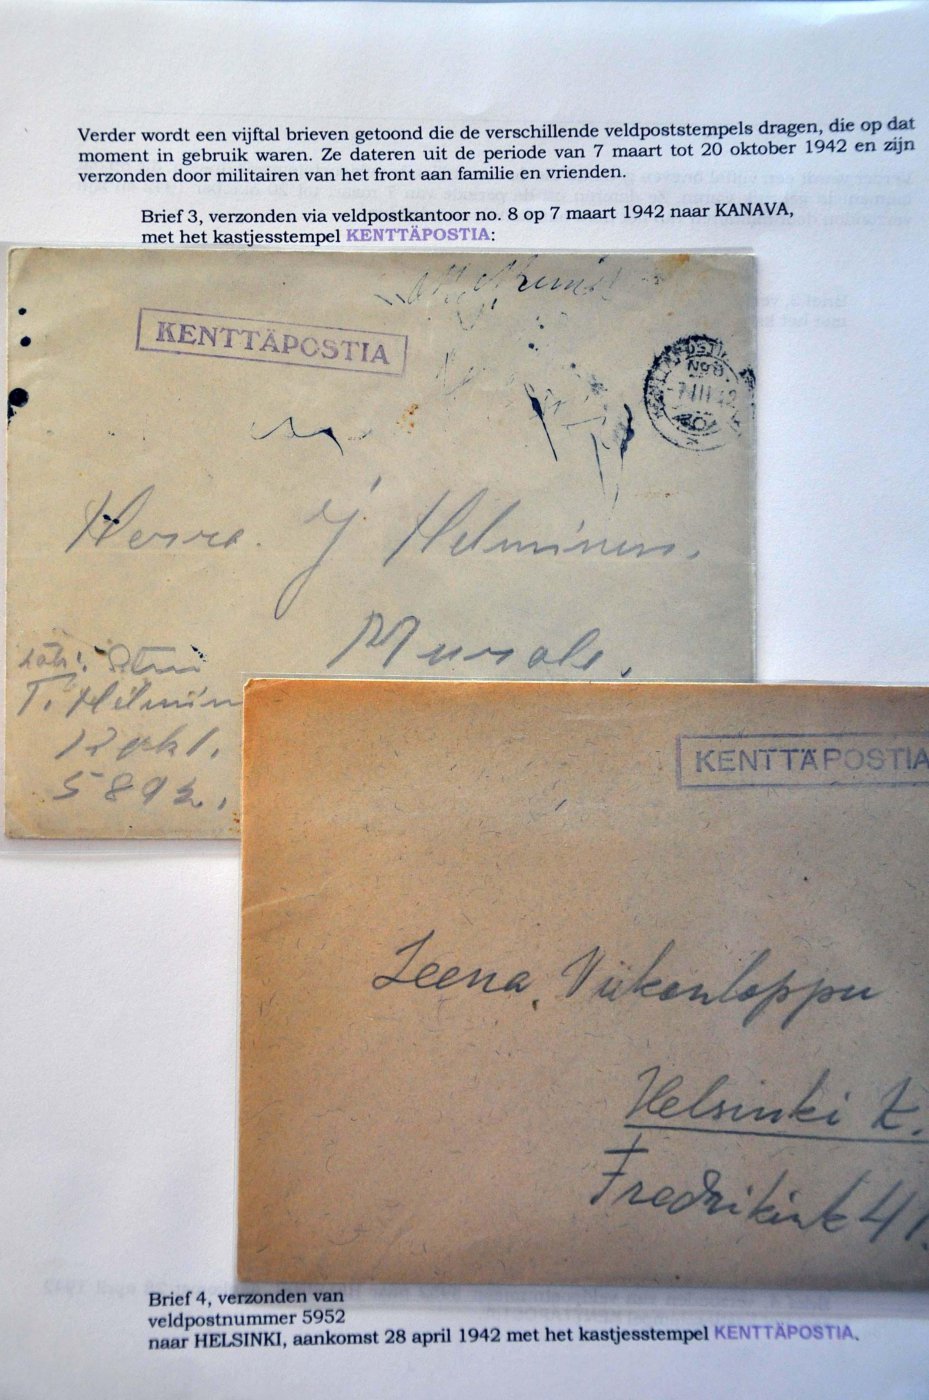 Verder wordt een vijftal brieven getoond die de verschillende veldpoststempels dragen, die op dat
moment in gebruik waren. Ze dateren uit de periode van 7 maart tot 20 oktober 1942 en zijn
verzonden door militairen van het front aan familie en vrienden.
Brief 3, verzonden via veldpostkantoor no. 8 op 7 maart 1942 naar KANAVA,
met het kastjesstempel KENTTÄPOSTIA:
KENTTÄPOSTIA
No 8
Herra. J Helminen.
T. Helmin
5892.
KENTTÄPOSTIA
Leena Viikonloppu
Helsinki K.
Fredrikink 41.
Brief 4, verzonden van
veldpostnummer 5952
naar HELSINKI, aankomst 28 april 1942 met het kastjesstempel KENTTÄPOSTIA.